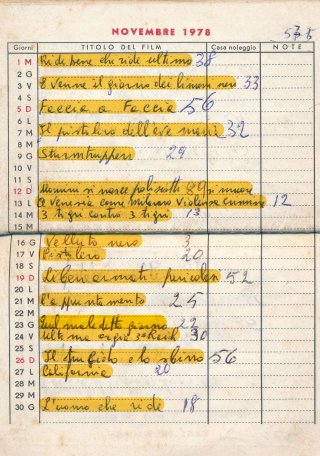 NOVEMBRE 1978
575
Giorni TITOLO DEL FILM Casa noleggio NOTE
1 M Ride bene chi ride ultimo 38
2 G
3 V E venne il giorno dei limoni neri 33
4 S
5 D Faccia a Faccia 56
6 L
7 M Il pistolero dell'ave maria 32
8 M
9 G Sturmtruppen 29
10 V
11 S
12 D Uomini si nasce poliziotti si muore
13 L Venezia 12
14 M 3 tigri contro 3 tigri 13
15 M
16 G Velluto nero 3
17 V Pistolero 20
18 S
19 D pericolosi 52
20 L
21 M L'appuntamento 25
22 M
23 G Quel maledetto giorno 22
24 V Ultima orgia 3° Reich 30
25 S
26 D Il e lo sbirro 56
27 L California 20
28 M
29 M
30 G L'uomo che ride 18